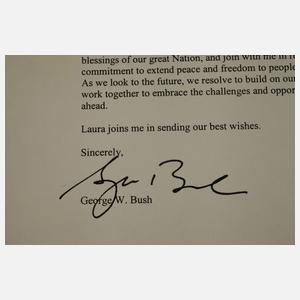 blessings of our great Nation, and join with me in
commitment to extend peace and freedom to people
As we look to the future, we resolve to build on our
work together to embrace the challenges and
ahead.
Laura joins me in sending our best wishes.
Sincerely,
George W. Bush